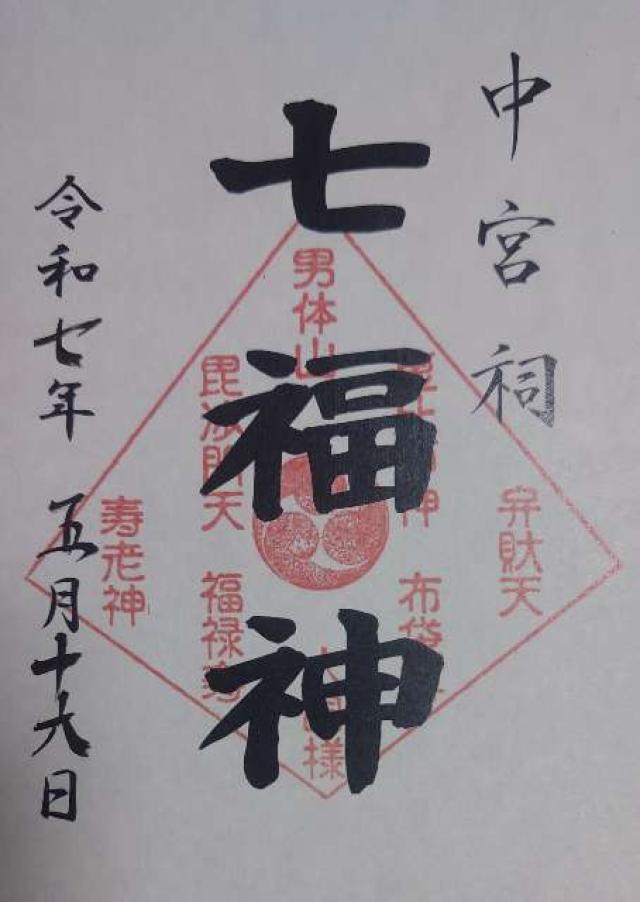 中宮祠
七福神
令和七年 五月十六日
男体山
弁財天
布袋
毘沙門天
福禄寿
寿老神
様